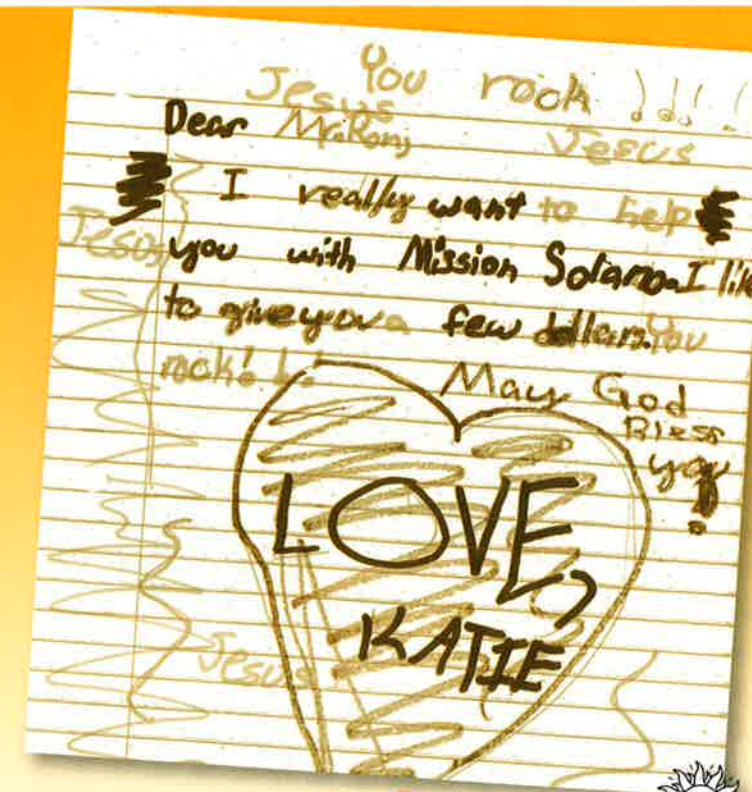 You rock !!!!
Jesus
Dear Mr. Ron, Jesus
I really want to help
Jesus
you with Mission Solano. I lik
to give you a few dollars. You
rock! ! !
May God
Bless
you!
LOVE,
KATIE
Jesus